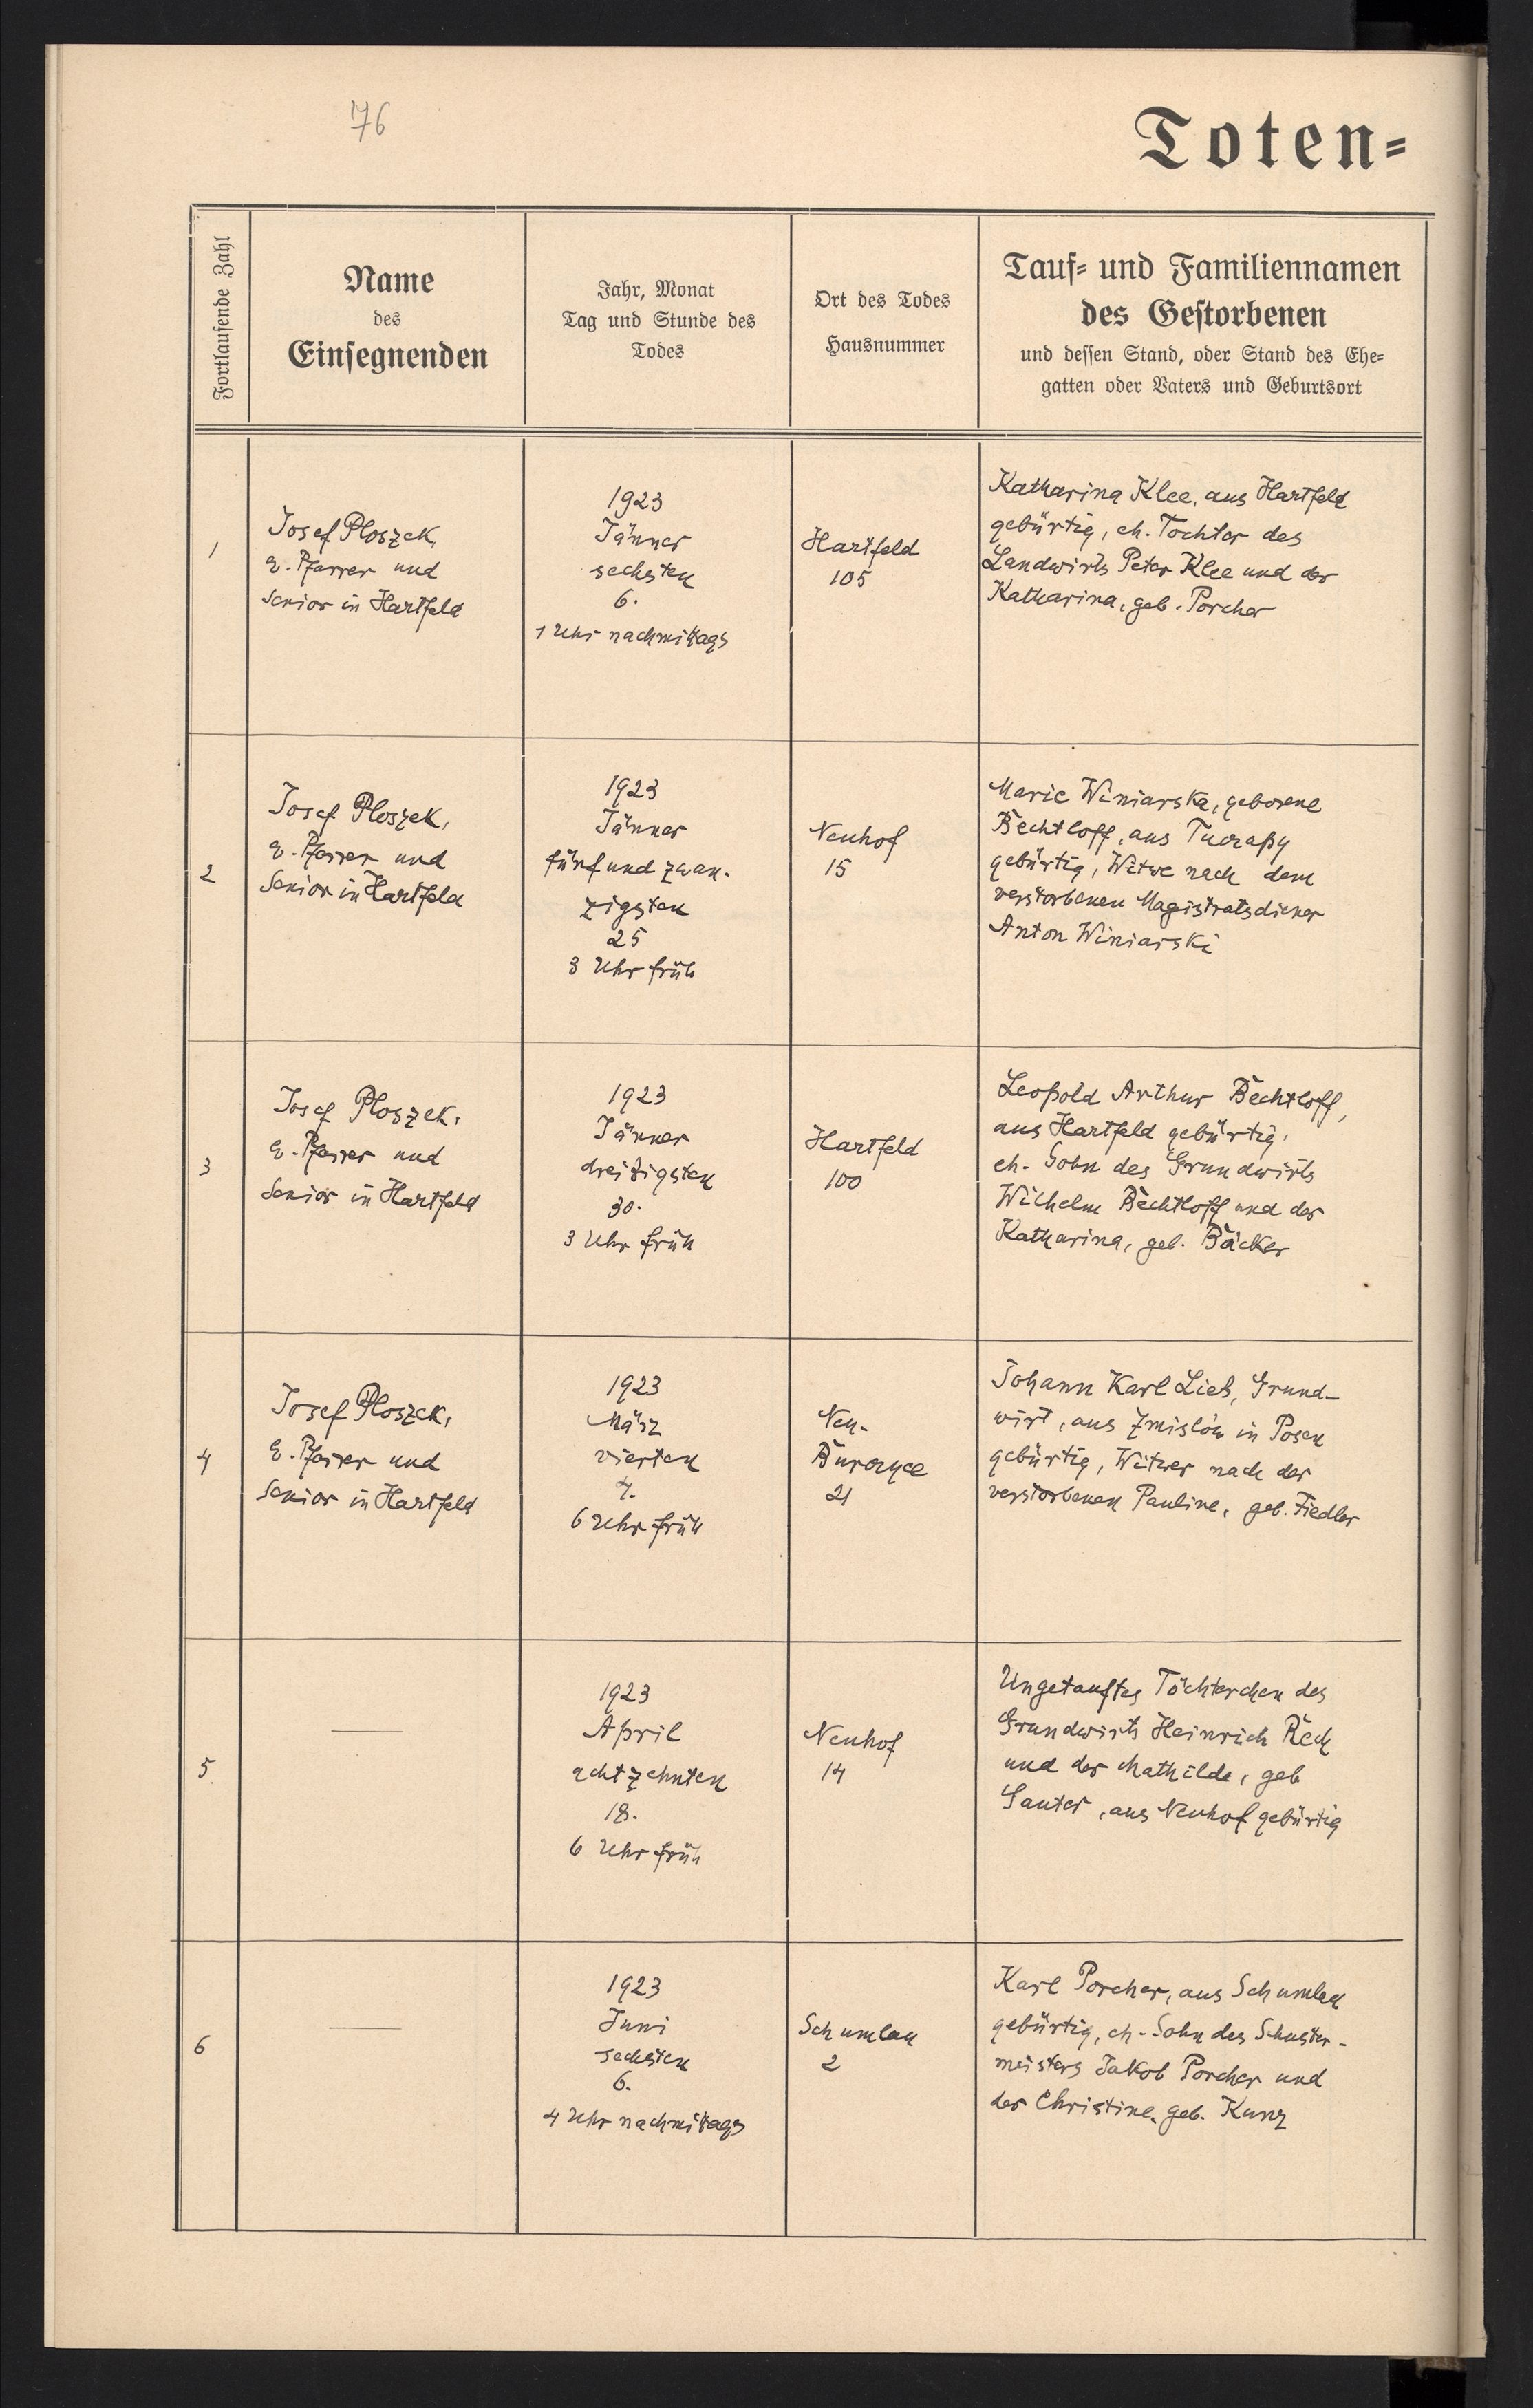 76
Toten=
Fortlaufende Zahl
Name
des
Einsegnenden
Jahr, Monat
Tag und Stunde des
Todes
Ort des Todes
Hausnummer
Tauf= und Familiennamen
des Gestorbenen
und dessen Stand, oder Stand des Ehe=
gatten oder Vaters und Geburtsort
1
Josef Ploszek,
e. Pfarrer und
Senior in Hartfeld
1923
Jänner
sechsten
6.
1 Uhr nachmittags
Hartfeld
105
Katharina Klee, aus Hartfeld
gebürtig, eh. Tochter des
Landwirts Peter Klee und der
Katharina, geb. Porcher
2
Josef Ploszek,
e. Pfarrer und
Senior in Hartfeld
1923
Jänner
fünfundzwan-
zigsten
25
3 Uhr früh
Neuhof
15
Marie Winiarska, geborene
Bechtloff, aus
gebürtig, Witwe nach dem
verstorbenen Magistratsdiener
Anton Winiarski
3
Josef Ploszek,
e. Pfarrer und
Senior in Hartfeld
1923
Jänner
dreißigsten
30.
3 Uhr früh
Hartfeld
100
Leopold Arthur Bechtloff,
aus Hartfeld gebürtig,
eh. Sohn des Grundwirts
Wilhelm Bechtloff und der
Katharina, geb. Bäcker
4
Josef Ploszek,
e. Pfarrer und
Senior in Hartfeld
1923
März
vierten
4.
6 Uhr früh
Neu-
Burczyce
21
Johann Karl Lieb, Grund-
wirt, aus Zmislów in Posen
gebürtig, Witwer nach der
verstorbenen Pauline, geb. Fiedler
5
1923
April
achtzehnten
18.
6 Uhr früh
Neuhof
14
Ungetauftes Töchterchen des
Grundwirts Heinrich Rech
und der Mathilde, geb
Sauter, aus Neuhof gebürtig
6
1923
Juni
sechsten
6.
4 Uhr nachmittags
Schumlau
2
Karl Porcher, aus Schumlau
gebürtig, eh. Sohn des Schuster-
meisters Jakob Porcher und
der Christine, geb. Kunz